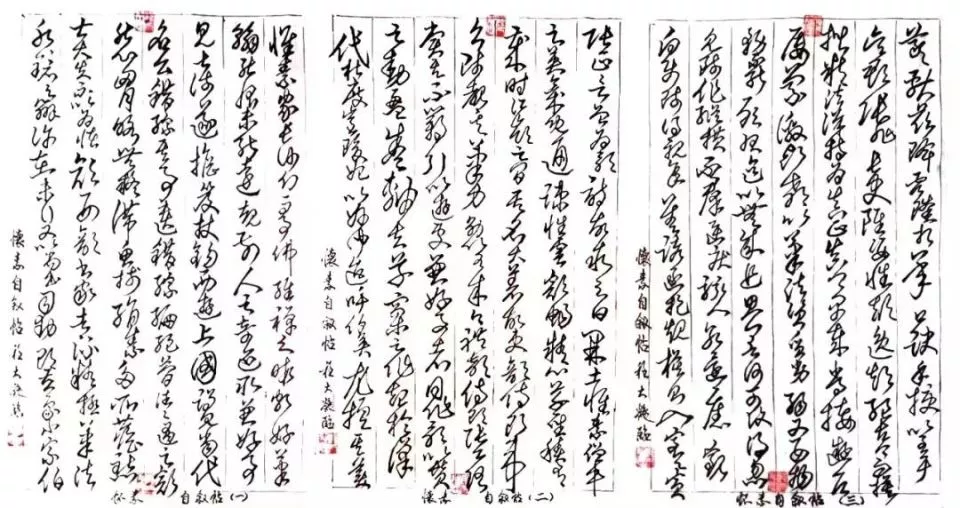 懷素家長沙幼而事佛經禪之暇頗好筆
翰然恨未能遠覩前人之奇迹所
見甚淺遂擔笈杖錫西遊上國謁見當代
名公錯綜其事遺編絕簡往往遇之豁
然心胸略無疑滯魚牋絹素多所塵點
士大夫不以為怪焉顏刑部書家者流精極筆法
水鏡之辨許在末行又以尚書司勳郎盧象小宗伯
懷素自敘帖
怀素自敘帖(一)
張正言曾為歌詩故敘之曰開士懷素僧中
之英氣概通疎性靈豁暢精心草聖積有
歲時江嶺之間其名大著故吏部侍郎韋
公陟覩其筆力勗以有成今禮部侍郎張公謂
賞其不羈引以遊處兼好事者同作歌以贊
之動盈卷軸夫草稾之作起於漢
代杜度崔瑗始以妙聞迨乎伯英尤擅其美
懷素自敘帖
懷素自敘帖(二)
羲獻茲降虞陸相承口訣手授以至于
吳郡張旭長史雖姿性顛逸超絕古今而模
楷精法詳特為真正真卿早歲常接遊居
屢蒙激昂教以筆法資質劣弱又嬰物
務不能懇習迄以無成追思一言何可復得忽
見師作縱橫不羣迅疾駭人若還舊觀
向使師得親承善誘函挹規模則入室之賓
懷素自敘帖
怀素自敘帖(三)